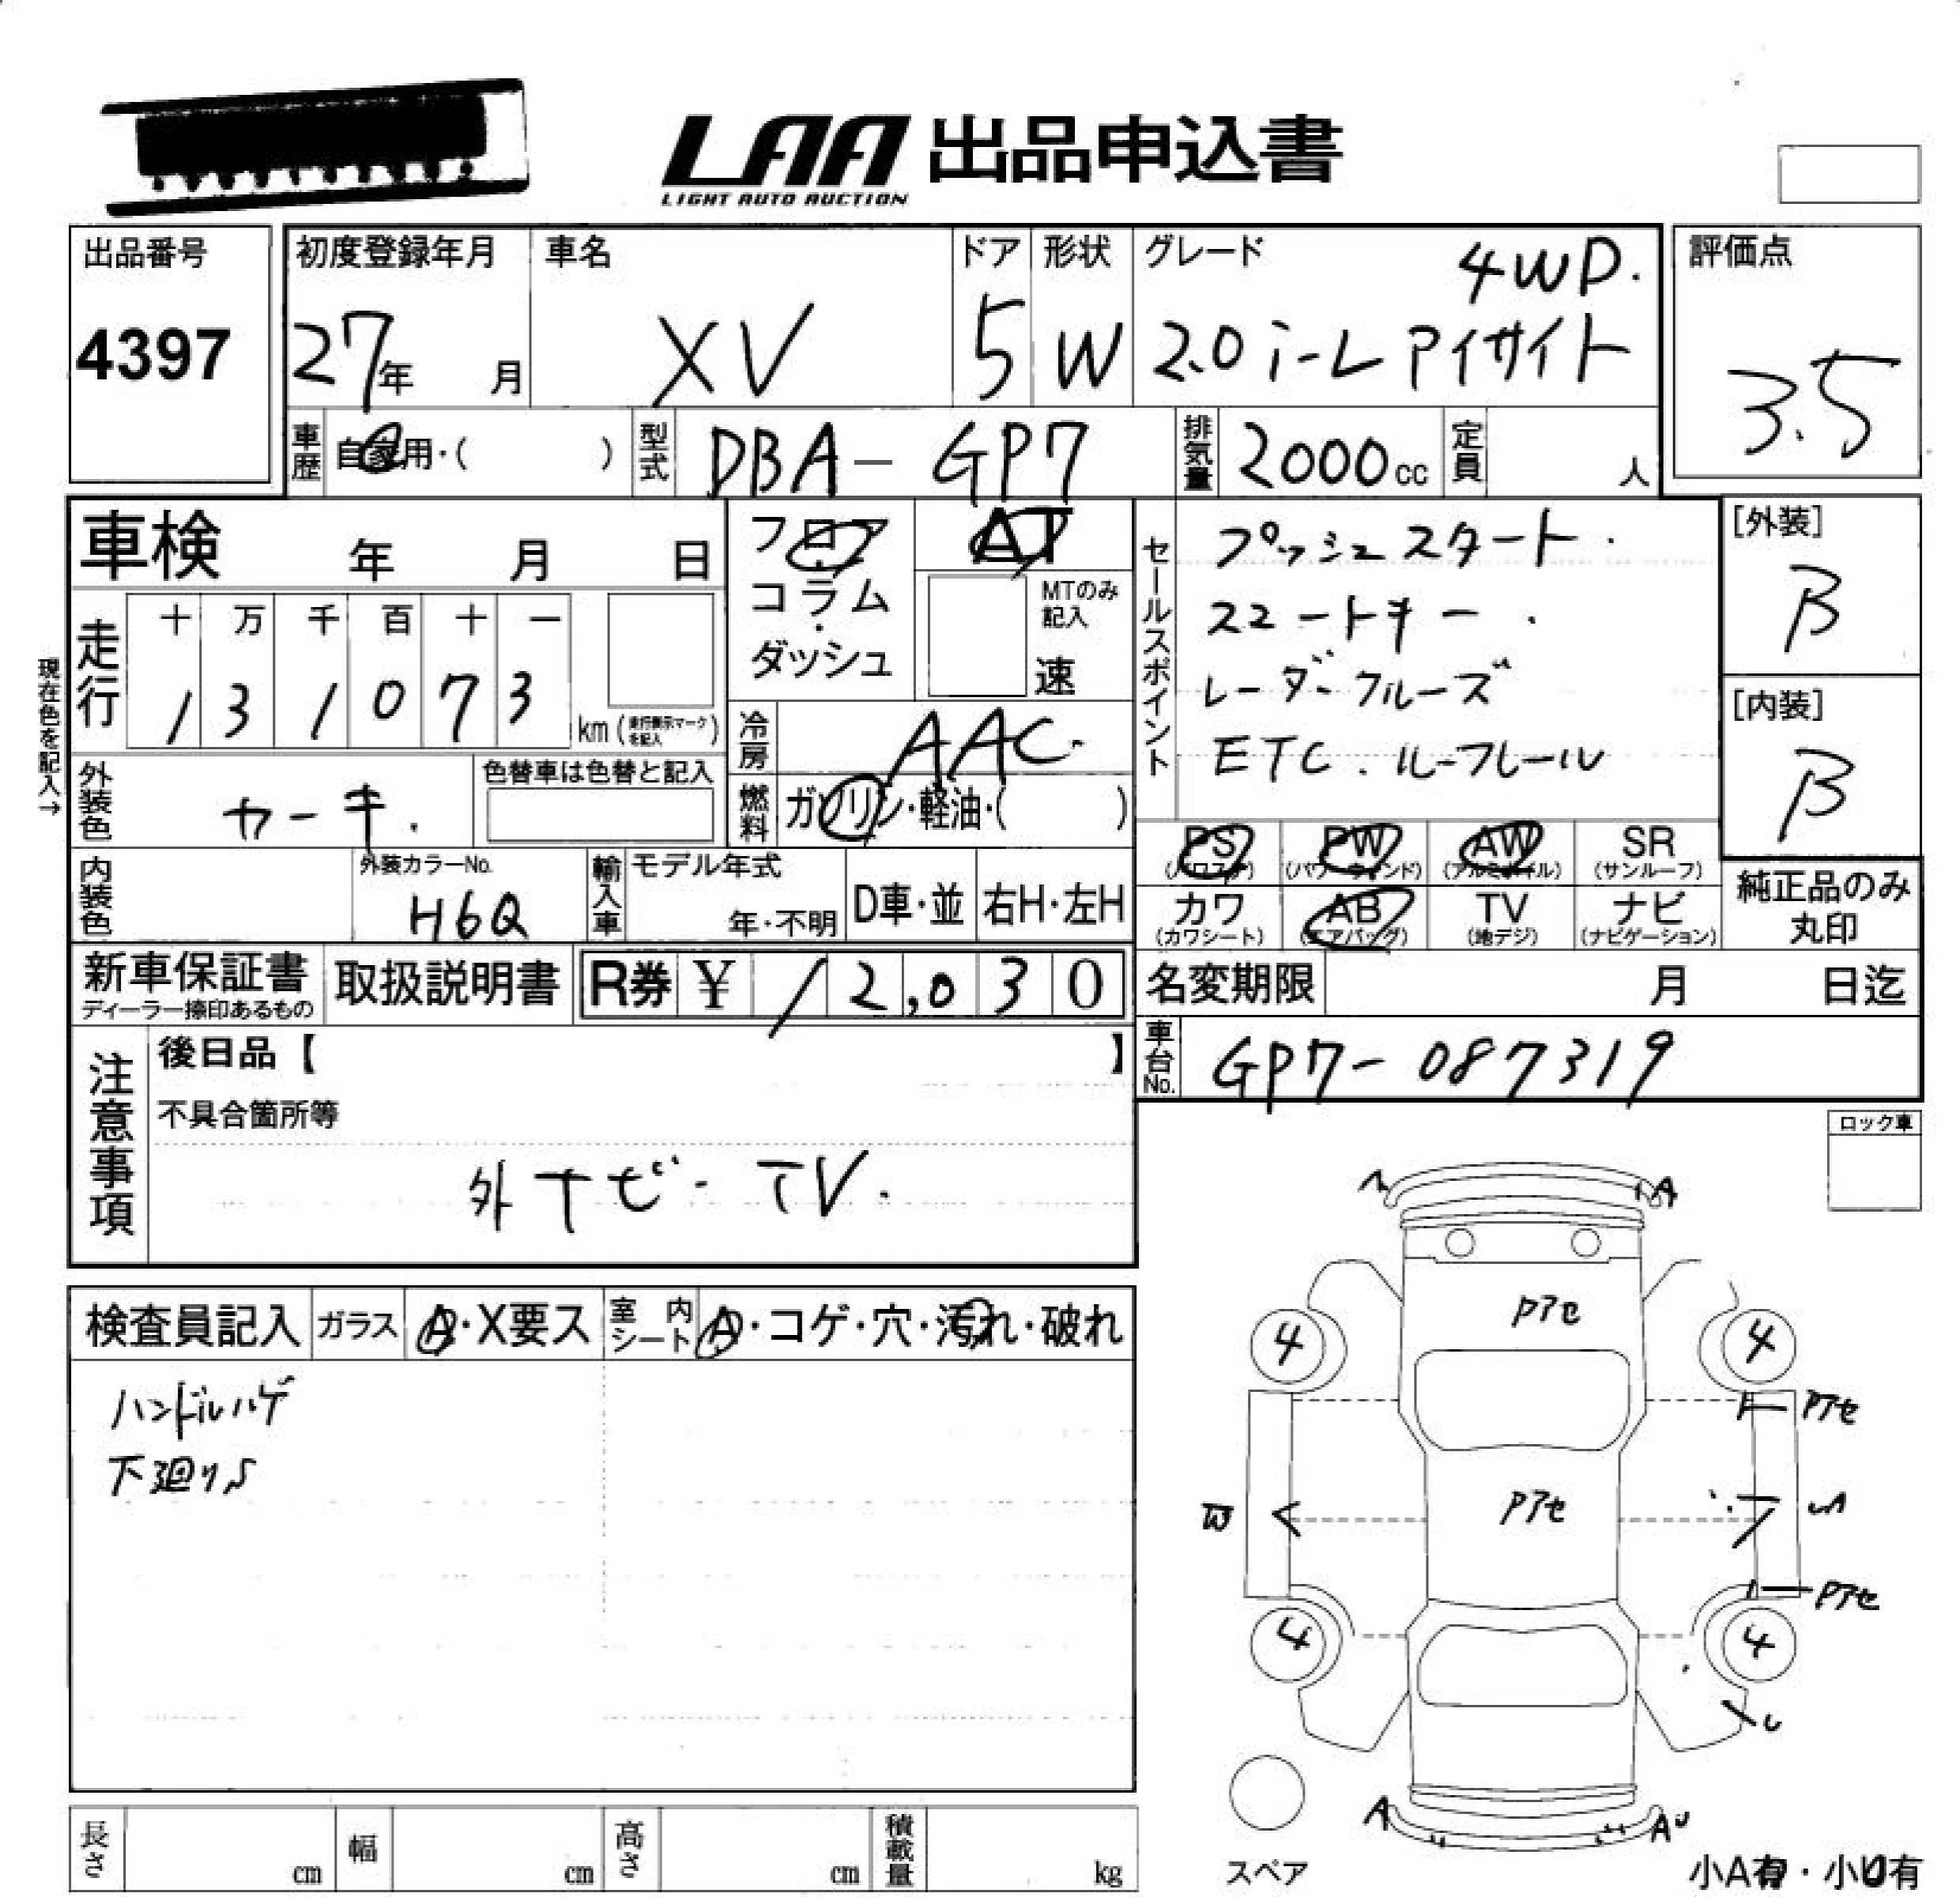 LAA 出品申込書
LIGHT AUTO AUCTION
出品番号
4397
初度登録年月
27年 月
車名
XV
ドア
5
形状
W
グレード
4WD.
2.0i-L アイサイト
評価点
3.5
車歴
自家用・( )
型式
DBA-GP7
排気量
2000cc
定員
人
車検 年 月 日
走行
十 万 千 百 十 一
1 3 1 0 7 3
km (走行表示マークを記入)
現在色を記入→
フロア
・
コラム
・
ダッシュ
AT
MTのみ記入
速
冷房
AAC.
燃料
ガソリン・軽油・( )
セールスポイント
プッシュスタート.
スマートキー.
レーダークルーズ
ETC. ルーフレール
[外装]
B
[内装]
B
外装色
カーキ.
色替車は色替と記入
内装色
外装カラーNo.
H6Q
輸入車
モデル年式
年・不明
D車・並
右H・左H
PS
(パワステ)
PW
(パワーウィンド)
AW
(アルミホイル)
SR
(サンルーフ)
カワ
(カワシート)
AB
(エアバッグ)
TV
(地デジ)
ナビ
(ナビゲーション)
純正品のみ
丸印
新車保証書
ディーラー捺印あるもの
取扱説明書
R券 ¥ 12,030
名変期限 月 日迄
車台No.
GP7-087319
注意事項
後日品【 】
不具合箇所等
外ナビ-TV.
ロック車
検査員記入
ガラス
A・X要ス
室内シート
A・コゲ・穴・汚れ・破れ
ハンドルハゲ
下廻りS
A
Pアセ
4
4
Pアセ
Pアセ
W
Pアセ
4
4
A
スペア
小A有・小U有
長さ cm
幅 cm
高さ cm
積載量 kg